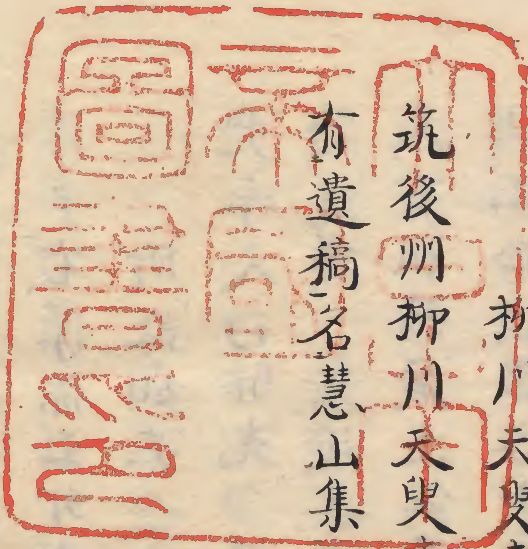 柳川天叟
筑後州柳川天叟
有遺稿名慧山集
大日本
帝國
圖書印